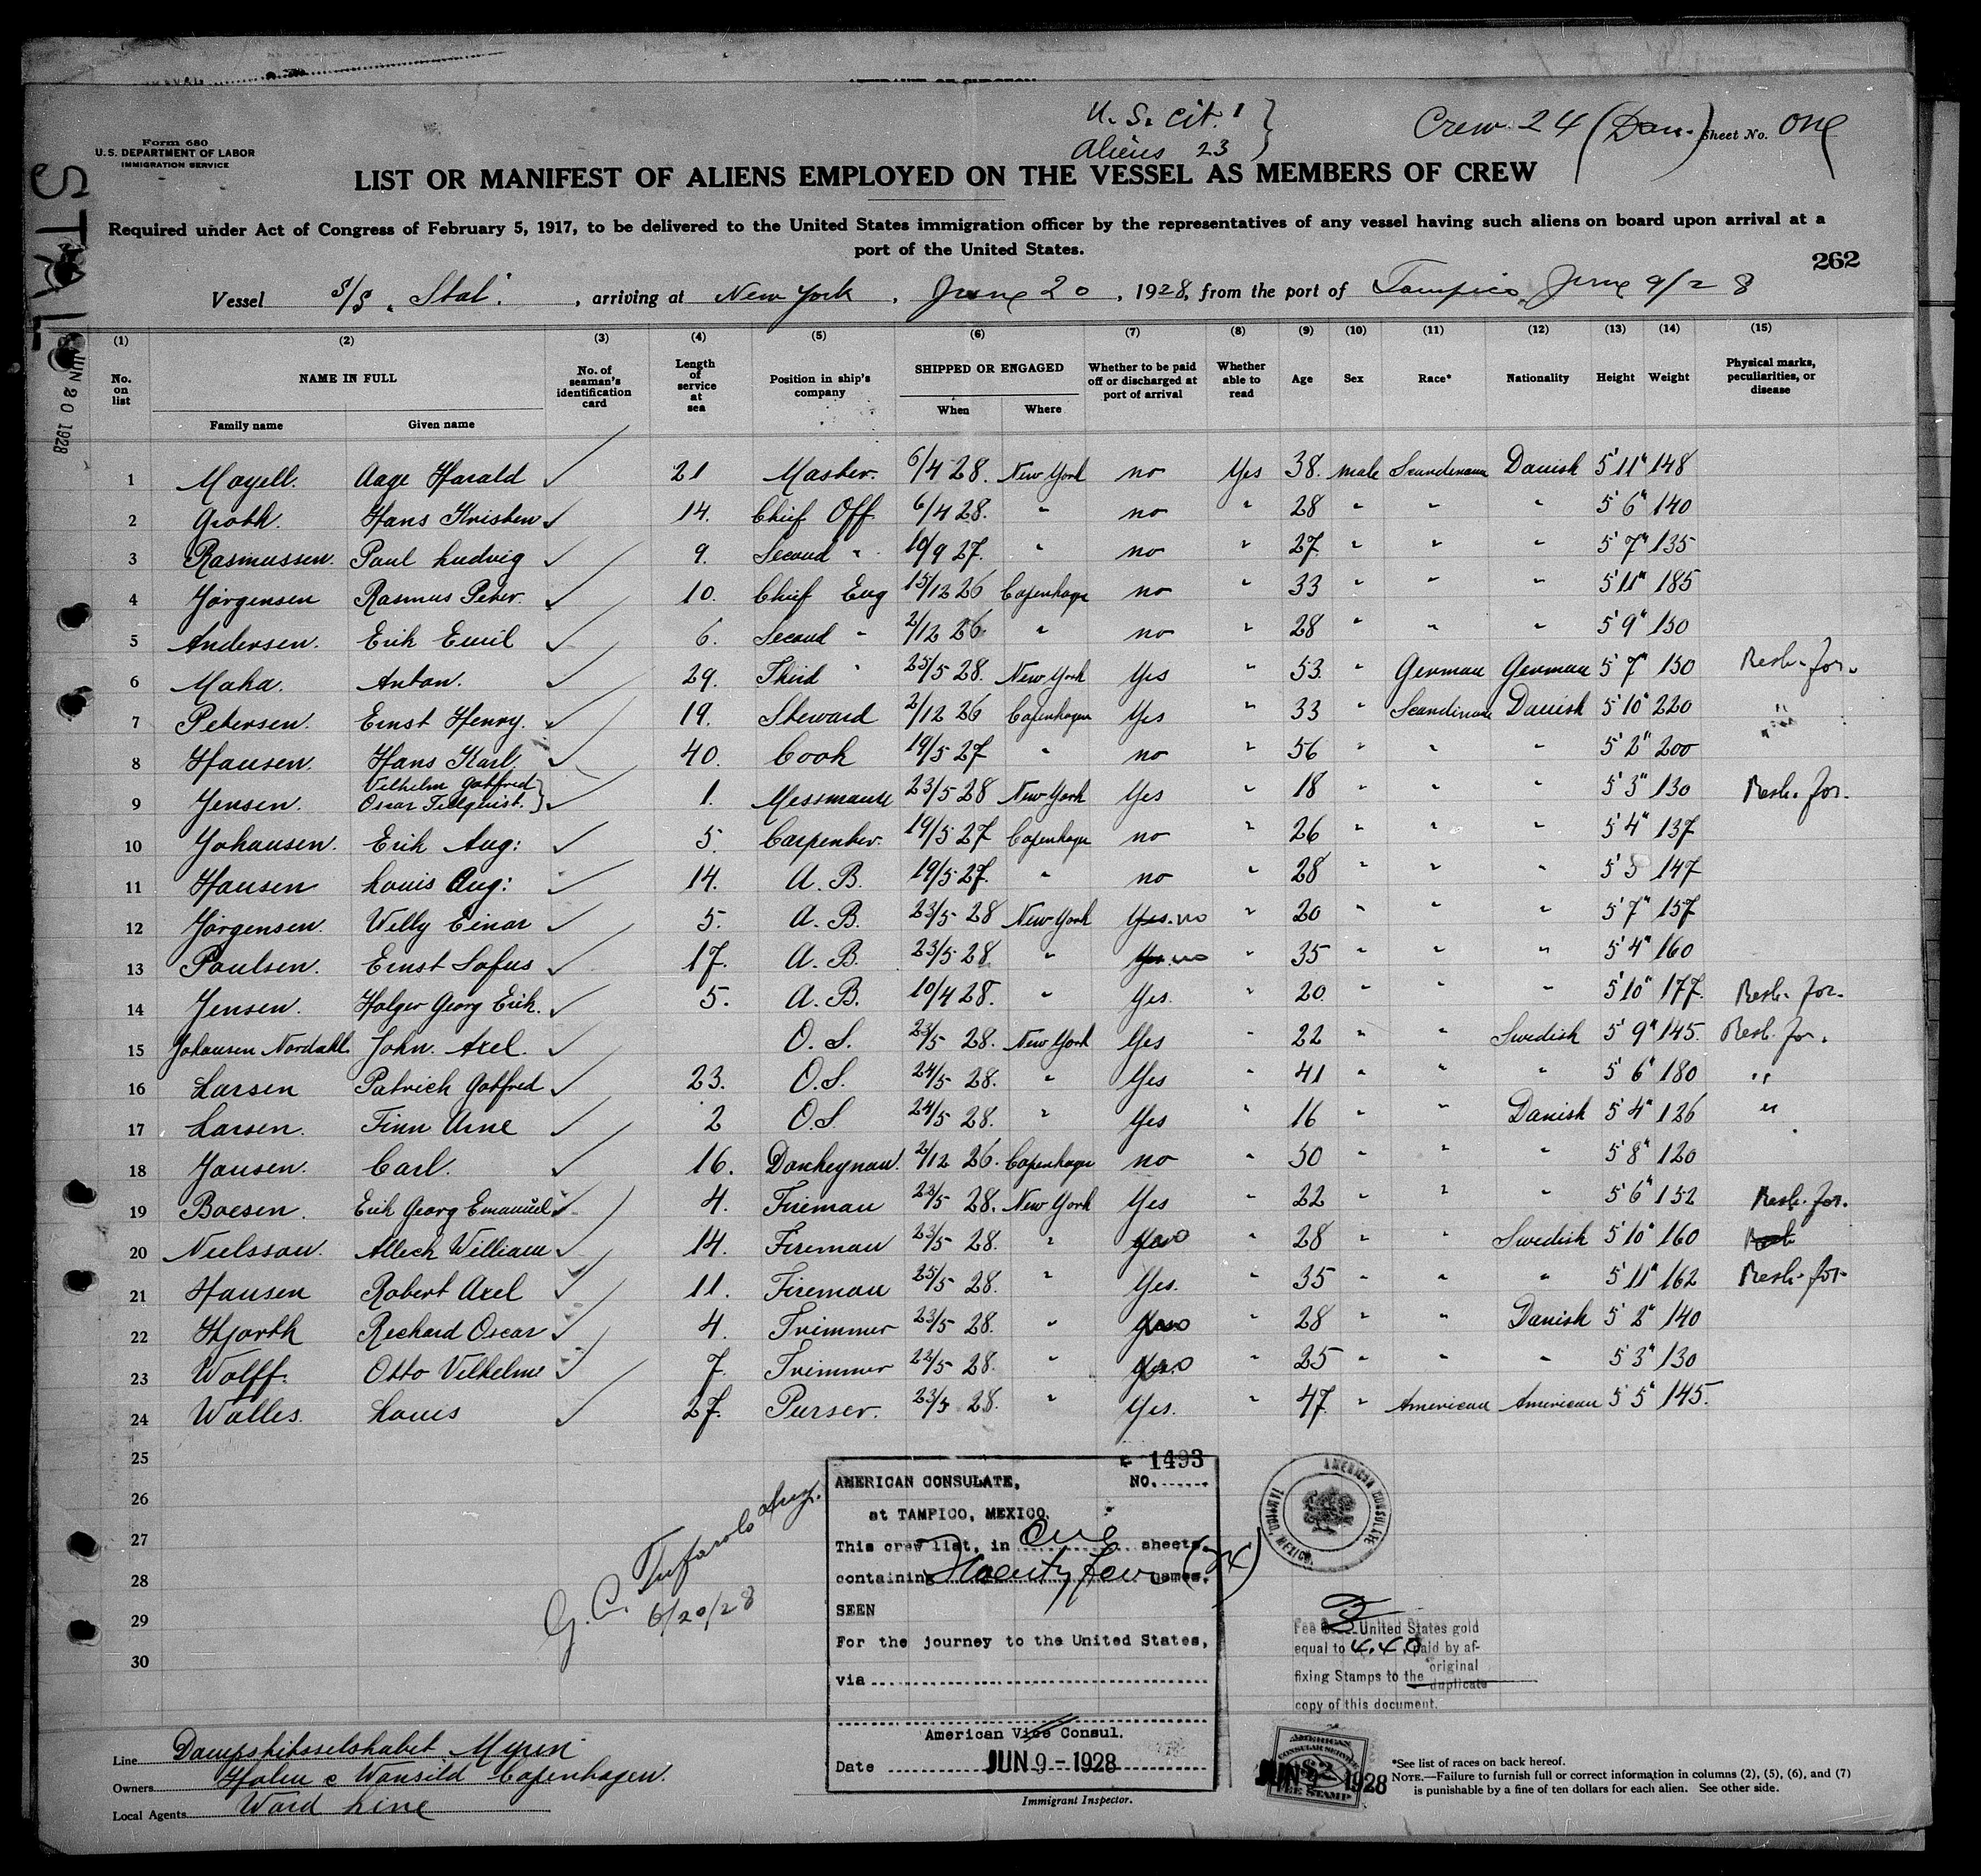 U.S. Cit. 1
Aliens 23
Crew 24 (Dan.) Sheet No. One
Form 680
U.S. DEPARTMENT OF LABOR
IMMIGRATION SERVICE
STAL
JUN 20 1928
LIST OR MANIFEST OF ALIENS EMPLOYED ON THE VESSEL AS MEMBERS OF CREW
Required under Act of Congress of February 5, 1917, to be delivered to the United States immigration officer by the representatives of any vessel having such aliens on board upon arrival at a
port of the United States.
262
Vessel S/S "Stal", arriving at New York, June 20, 1928, from the port of Tampico June 9/28
(1) (2) (3) (4) (5) (6) (7) (8) (9) (10) (11) (12) (13) (14) (15)
No. on list NAME IN FULL Family name Given name No. of seaman's identification card Length of service at sea Position in ship's company SHIPPED OR ENGAGED When Where Whether to be paid off or discharged at port of arrival Whether able to read Age Sex Race* Nationality Height Weight Physical marks, peculiarities, or disease
1 Mayell. Aage Harald ✓ 21 Master. 6/4 28. New York no Yes 38. male Scandinavn Danish 5'11" 148
2 Groth. Hans Kristen ✓ 14. Chief Off. 6/4 28. " no " 28 " " " 5'6" 140
3 Rasmussen. Poul Ludvig ✓ 9. Second " 10/9 27. " no " 27 " " " 5'7" 135
4 Jørgensen Rasmus Peter. ✓ 10. Chief Eng 15/12 26 Copenhagn no " 33 " " " 5'11" 185
5 Andersen. Erik Emil ✓ 6. Second " 2/12 26 " no " 28 " " " 5'9" 150
6 Maha. Anton. ✓ 29. Third " 25/5 28. New York Yes " 53. " German German 5'7" 150
7 Petersen. Ernst Henry. ✓ 19. Steward 2/12 26 Copenhagen Yes " 33 " Scandinav Danish 5'10" 220 "
8 Hansen. Hans Karl. ✓ 40. Cook 19/5 27 " no " 56 " " " 5'2" 200
9 Jensen. Vilhelm Gotfred Oscar ✓ 1. Messmann 23/5 28 New York Yes " 18 " " " 5'3" 130
10 Johansen. Erik Aug: ✓ 5. Carpenter. 19/5 27 Copenhagn no " 26 " " " 5'4" 137
11 Hansen Louis Aug: ✓ 14. A. B. 19/5 27. " no " 28 " " " 5'5 147
12 Jørgensen. Willy Einar ✓ 5. A. B. 23/5 28 New York Yes. no " 20 " " " 5'7" 157
13 Poulsen. Ernst Sofus ✓ 17. A. B. 23/5 28. " Yes. no " 35 " " " 5'4" 160
14 Jensen. Holger Georg Erik. ✓ 5. A. B. 10/4 28. " Yes. " 20 " " " 5'10" 177.
15 Johansen Nordahl. John. Axel. ✓ O. S. 23/5 28. New York Yes " 22 " " Swedish 5'9" 145.
16 Larsen Patrick Gotfred ✓ 23. O.S. 24/5 28. " Yes " 41 " " " 5'6" 180 "
17 Larsen. Finn Arne ✓ 2 O.S 24/5 28. " Yes " 16 " " Danish 5'4" 126 "
18 Jansen. Carl. ✓ 16. Donkeyman. 2/12 26. Copenhagen no " 50 " " " 5'8" 120
19 Boesen. Erik Georg Emanuel ✓ 4. Fireman 23/5 28. New York Yes " 22 " " " 5'6" 152
20 Nielsson. William ✓ 14. Fireman 23/5 28. " no " 28 " " Swedish 5'10" 160
21 Hansen Robert Axel ✓ 11. Fireman 25/5 28. " Yes. " 35 " " " 5'11" 162
22 Hjorth Richard Oscar ✓ 4. Trimmer 23/5 28. " no " 28 " " Danish 5'2" 140
23 Wolff. Otto Vilhelm ✓ 7. Trimmer 22/5 28. " no " 25 " " " 5'3" 130
24 Walles. Louis ✓ 27. Purser. 23/5 28. " Yes. " 47. " American American 5'5" 145.
25
26
27
28
29
30
G. C. Insp.
6/20/28
AMERICAN CONSULATE, NO. 1493
at TAMPICO, MEXICO.
This crew list, in One sheets,
containing Twenty Four (24) names,
SEEN
For the journey to the United States,
via
American Vice Consul.
Date JUN 9 - 1928
Immigrant Inspector.
AMERICAN CONSULATE TAMPICO, MEXICO.
Fee $ 2 United States gold
equal to 4.40, paid by af-
fixing Stamps to the original
duplicate
copy of this document.
AMERICAN CONSULAR SERVICE $2 FEE STAMP
JUN 9 - 1928
Line Dampskibsselskabet Myren
Owners Holm & Wonsild Copenhagen.
Local Agents Ward Line
*See list of races on back hereof.
NOTE.—Failure to furnish full or correct information in columns (2), (5), (6), and (7)
is punishable by a fine of ten dollars for each alien. See other side.